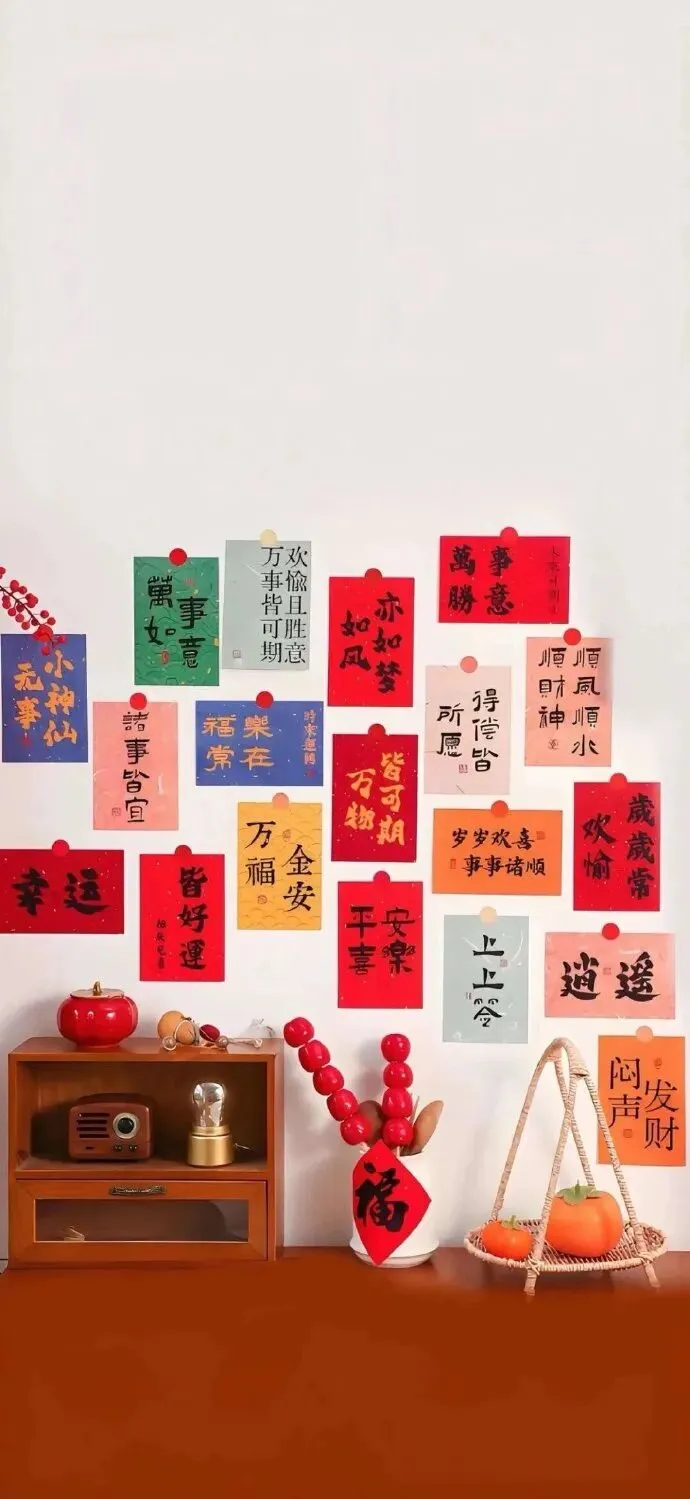 萬事
如意
欢愉且胜意
万事皆可期
萬事
勝意
亦如梦
如风
小神仙
无事
順風順水
順財神
得偿皆
所愿
諸事皆宜
福樂
常在
万物
皆可期
歲歲常
欢愉
万福
金安
岁岁欢喜
事事诸顺
幸运
皆好運
平安
喜樂
上上签
逍遥
闷声
发财
福